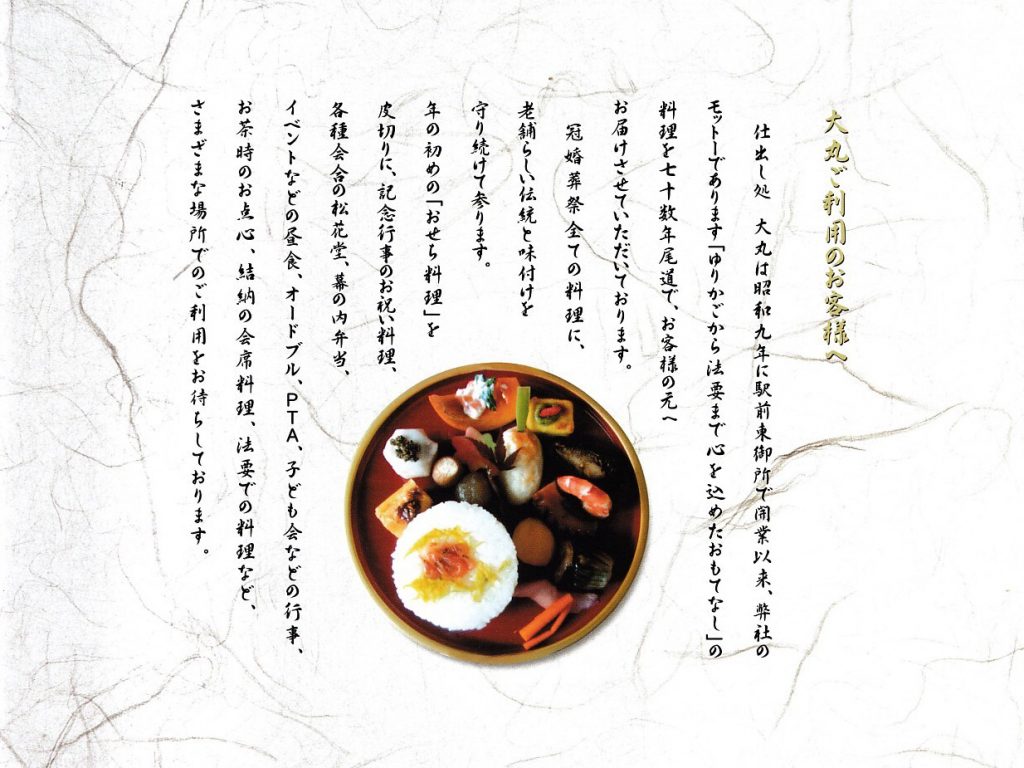 大丸ご利用のお客様へ
仕出し処　大丸は昭和九年に駅前東御所で開業以来、弊社の
モットーであります「ゆりかごから法要まで心を込めたおもてなし」の
料理を七十数年尾道で、お客様の元へ
お届けさせていただいております。
冠婚葬祭全ての料理に、
老舗らしい伝統と味付けを
守り続けて参ります。
年の初めの「おせち料理」を
皮切りに、記念行事のお祝い料理、
各種会合の松花堂、幕の内弁当、
イベントなどの昼食、オードブル、PTA、子ども会などの行事、
お茶時のお点心、結納の会席料理、法要での料理など、
さまざまな場所でのご利用をお待ちしております。